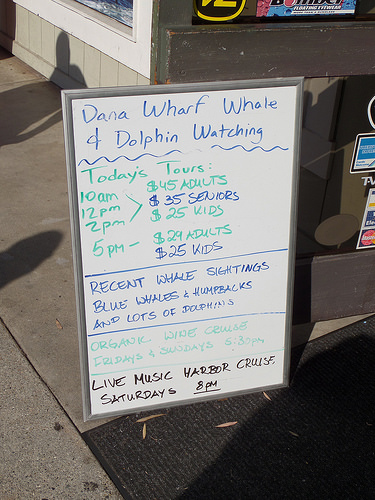 Dana Wharf Whale
& Dolphin Watching
Today's Tours:
10am
12pm
2pm
$45 ADULTS
$35 SENIORS
$25 KIDS
5pm – $29 ADULTS
$25 KIDS
RECENT WHALE SIGHTINGS
BLUE WHALES & HUMPBACKS
AND LOTS OF DOLPHINS
ORGANIC WINE CRUISE
FRIDAYS & SUNDAYS 5:30pm
LIVE MUSIC HARBOR CRUISE
SATURDAYS 8pm
FLOATING EYEWEAR